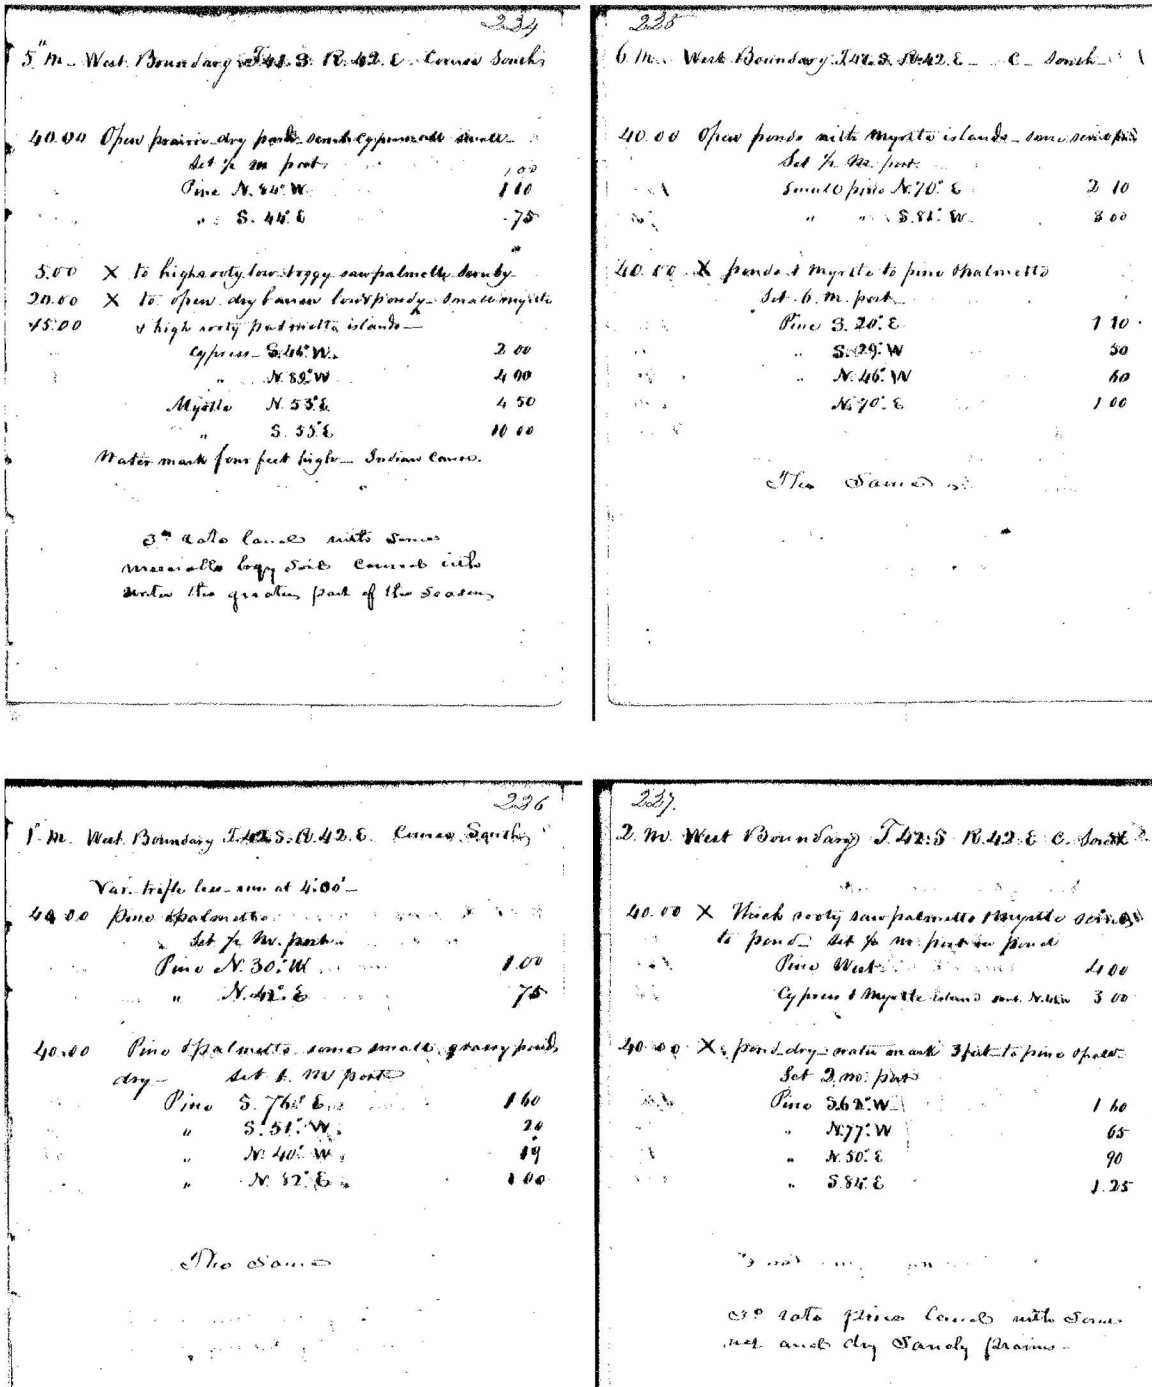 234
5 M. West Boundary T.41.S. R.42.E. Course South
40.00 Open prairie dry small
Set 1/2 M post
100
Pine N. 84° W. 1 10
" S. 44° E 75
5.00 X to high rooty low boggy sawpalmetto
20.00 X to open dry low pondy small myrtle
15.00 & high rooty palmetto islands
Cypress S. 46° W. 2 00
" N. 89° W 4 00
Myrtle N. 53° E 4 50
" S. 55° E 10 00
Water mark four feet high Indian Canoe.
3d rate Land with Some
boggy Soil Covered with
water the greater part of the Season
225
6 M. West Boundary T.41.S. R.42.E C South
40.00 Open ponds with myrtle islands some
Set 1/2 M. post
Small pine N. 70° E 2 10
" " S. 81° W. 3 00
40.00 X ponds & myrtle to pine & palmetto
Set 6 M. post
Pine S. 20° E 1 10
" S. 29° W 50
" N. 46° W 60
N. 70° E 1 00
The Same
236
1 M. West Boundary T.42.S. R.42.E. Course South
Var. trifle less run at 4.00'
40 00 Pine & palmetto
Set 1/2 M. post
Pine N. 30° W 1.00
" N. 42° E 75
40.00 Pine & palmetto some small grassy ponds
dry Set 1 M post
Pine S. 76° E. 1 60
" S. 51° W. 20
" N. 40° W. 19
" N. 82° E 1 00
The Same
227.
2 M West Boundary T.42.S R.42.E C. South
40.00 X Thick rooty sawpalmetto & myrtle
to pond Set 1/2 M. post in pond
Pine West 4 00
Cypress & Myrtle island 3 00
40.00 X pond dry water mark 3 feet to pine & palm
Set 2 M. post
Pine S. 62° W. 1 60
" N. 77° W 65
" N. 50° E 90
" S. 84° E 1.25
3d rate pine Land with Some
wet and dry Sandy Prairies